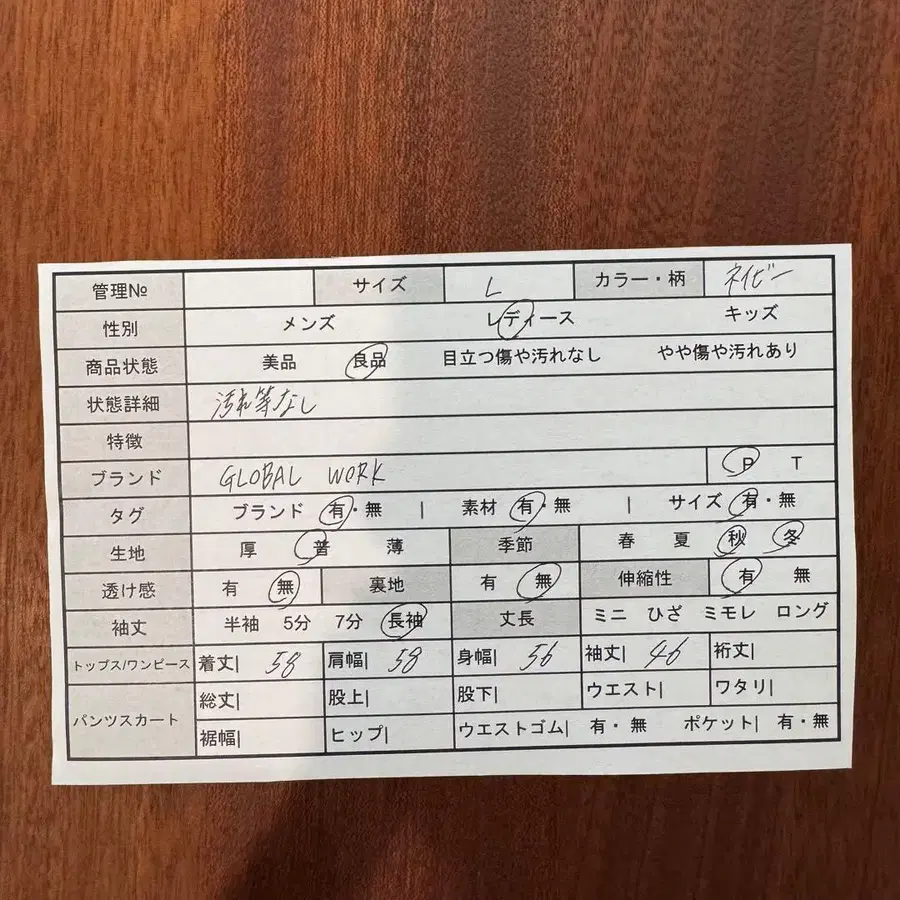 管理№ サイズ L カラー・柄 ネイビー
性別 メンズ レディース キッズ
商品状態 美品 良品 目立つ傷や汚れなし やや傷や汚れあり
状態詳細 汚れ等なし
特徴
ブランド GLOBAL WORK P T
タグ ブランド 有・無 | 素材 有・無 | サイズ 有・無
生地 厚 普 薄 季節 春 夏 秋 冬
透け感 有 無 裏地 有 無 伸縮性 有 無
袖丈 半袖 5分 7分 長袖 丈長 ミニ ひざ ミモレ ロング
トップス/ワンピース 着丈| 58 肩幅| 58 身幅| 56 袖丈| 46 裄丈|
パンツスカート 総丈| 股上| 股下| ウエスト| ワタリ|
裾幅| ヒップ| ウエストゴム| 有・無 ポケット| 有・無